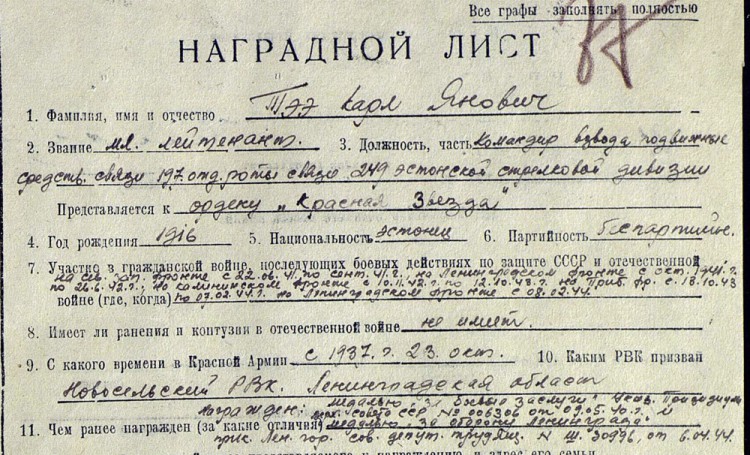 Все графы заполнять полностью
НАГРАДНОЙ ЛИСТ
1. Фамилия, имя и отчество Тээ Карл Янович
2. Звание мл. лейтенант. 3. Должность, часть Командир взвода подвижных
средств связи 197 отд. роты связи 249 эстонской стрелковой дивизии
Представляется к ордену „Красная Звезда"
4. Год рождения 1916 5. Национальность эстонец 6. Партийность беспартийн.
7. Участие в гражданской войне, последующих боевых действиях по защите СССР и отечественной
на сев. зап. фронте с 22.06.41 по сент. 41 г., на Ленинградском фронте с окт. 1941 г.
по 26.6.42 г., на калининском фронте с 10.11.42 г. по 12.10.43 г. на Приб. фр. с 18.10.43
войне (где, когда) по 07.02.44 г. на Ленинградском фронте с 08.02.44.
8. Имеет ли ранения и контузии в отечественной войне не имеет.
9. С какого времени в Красной Армии с 1937 г. 23 окт. 10. Каким РВК призван
Новосельский РВК. Ленинградская область
Награжден: медалью „За боевые заслуги" Указ. Президиума
верх. совета ССР № 006306 от 09.05.40 г. и
11. Чем ранее награжден (за какие отличия) медалью „За оборону Ленинграда"
прик. Лен. гор. сов. депут. трудящ. N Ш. 30996, от 6.04.44.